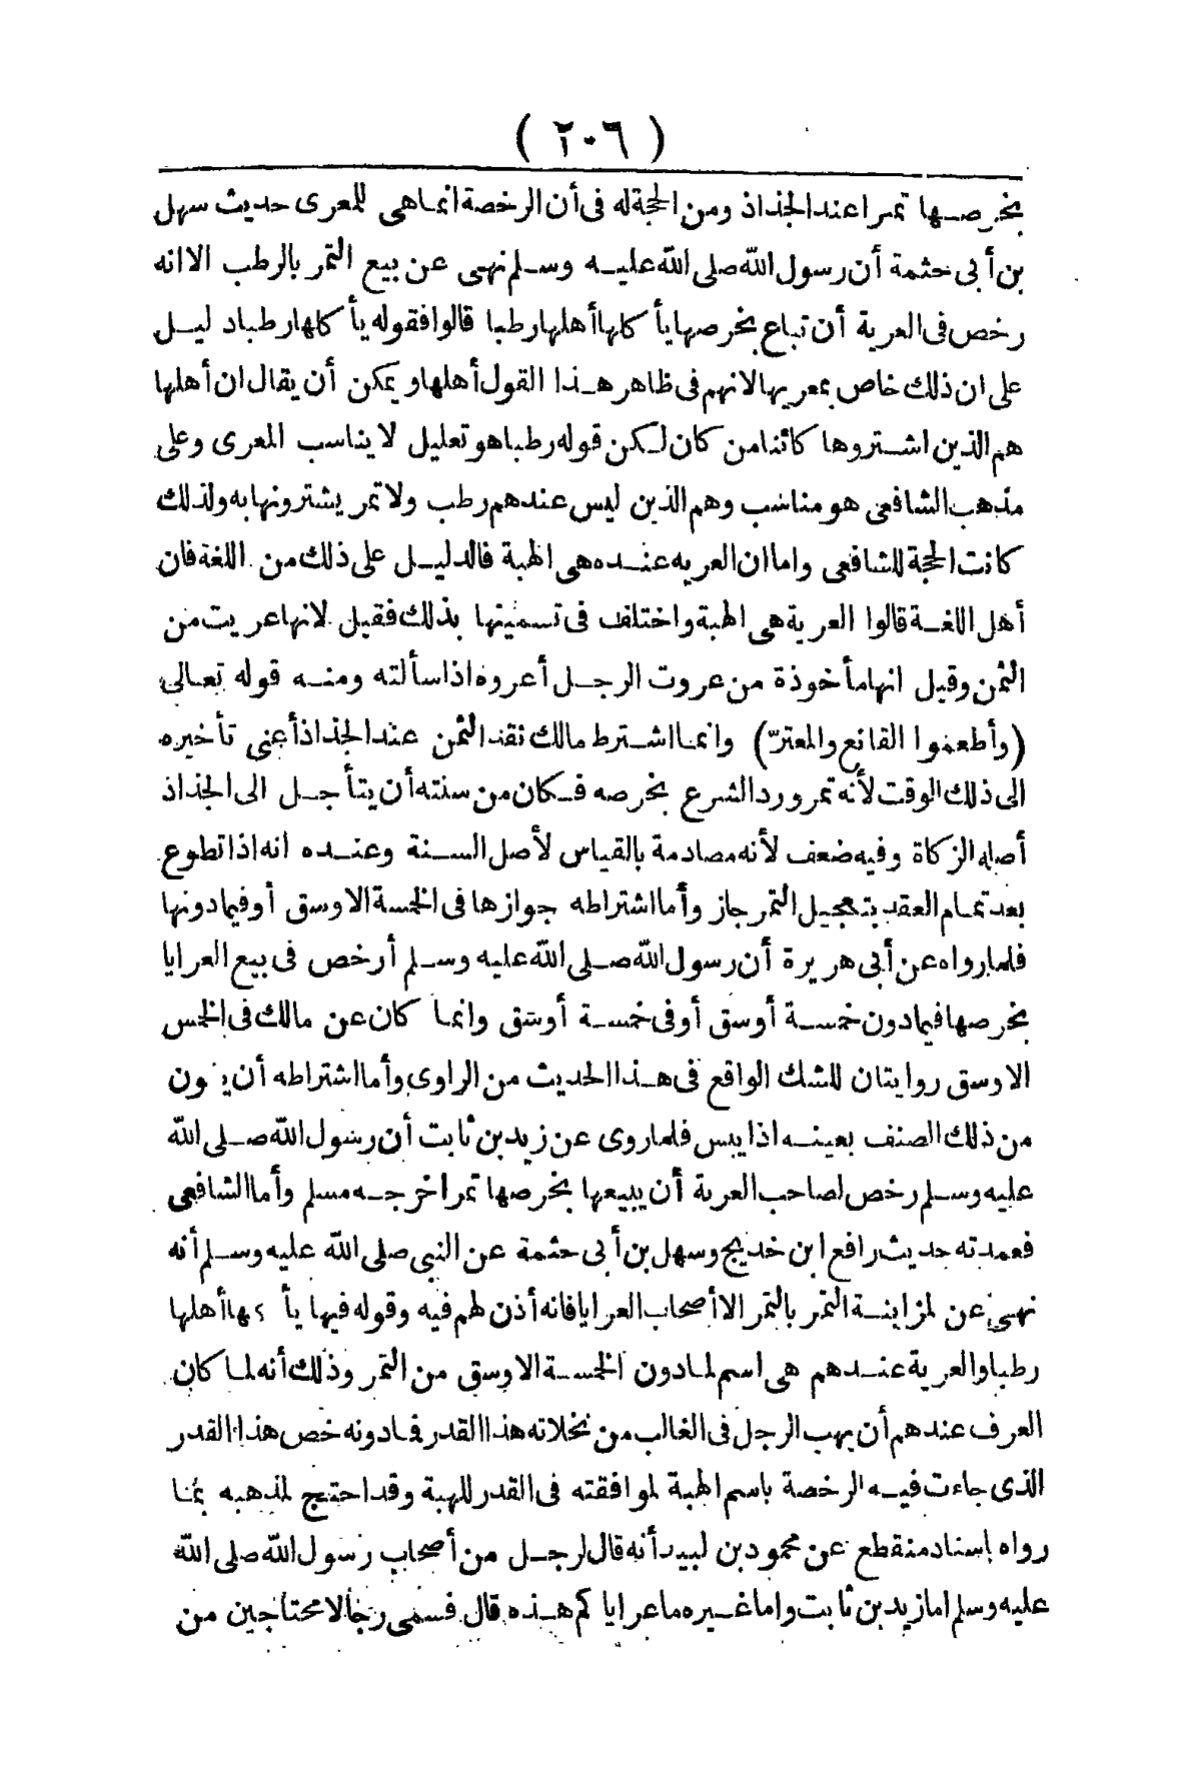 ( ٢٠٦ )
بخرصها تمرا عند الجذاذ ومن الحجة له فى أن الرخصة انما هى للمعرى حديث سهل
بن أبى حثمة أن رسول الله صلى الله عليه وسلم نهى عن بيع التمر بالرطب الا انه
رخص فى العرية أن تباع بخرصها يأكلها أهلها رطبا قالوا فقوله يأكلها رطبا دليل
على ان ذلك خاص بمعريها لانهم فى ظاهر هذا القول أهلها ويمكن أن يقال ان أهلها
هم الذين اشتروها كائنا من كان لكن قوله رطبا هو تعليل لا يناسب المعرى وعلى
مذهب الشافعى هو مناسب وهم الذين ليس عندهم رطب ولا تمر يشترونها به ولذلك
كانت الحجة للشافعى واما ان العريه عنده هى الهبة فالدليل على ذلك من اللغة فان
أهل اللغة قالوا العرية هى الهبة واختلف فى تسميتها بذلك فقيل لانها عريت من
الثمن وقيل انها مأخوذة من عروت الرجل أعروه اذا سألته ومنه قوله تعالى
(وأطعموا القانع والمعترّ) وانما اشترط مالك نقد الثمن عند الجذاذ أعنى تأخيره
الى ذلك الوقت لأنه تمر ورد الشرع بخرصه فكان من سنته أن يتأجل الى الجذاذ
أصله الزكاة وفيه ضعف لأنه مصادمة بالقياس لأصل السنة وعنده انه اذا تطوع
بعد تمام العقد بتعجيل التمر جاز وأما اشتراطه جوازها فى الخمسة الاوسق أو فيما دونها
فلما رواه عن أبى هريرة أن رسول الله صلى الله عليه وسلم أرخص فى بيع العرايا
بخرصها فيما دون خمسة أوسق أو فى خمسة أوسق وانما كان عن مالك فى الخمس
الاوسق روايتان للشك الواقع فى هذا الحديث من الراوى وأما اشتراطه أن يكون
من ذلك الصنف بعينه اذا يبس فلما روى عن زيد بن ثابت أن رسول الله صلى الله
عليه وسلم رخص لصاحب العرية أن يبيعها بخرصها تمرا خرجه مسلم وأما الشافعى
فعمدته حديث رافع ابن خديج وسهل بن أبى حثمة عن النبى صلى الله عليه وسلم أنه
نهى عن لمزابنة التمر بالتمر الا أصحاب العرايا فانه أذن لهم فيه وقوله فيها يأكلها أهلها
رطبا والعرية عندهم هى اسم لما دون الخمسة الاوسق من التمر وذلك أنه لما كان
العرف عندهم أن يهب الرجل فى الغالب من نخلاته هذا القدر فما دونه خص هذا القدر
الذى جاءت فيه الرخصة باسم الهبة لموافقته فى القدر للهبة وقد احتج لمذهبه بما
رواه باسناد منقطع عن محمود بن لبيد أنه قال لرجل من أصحاب رسول الله صلى الله
عليه وسلم اما زيد بن ثابت واما غيره ما عراياكم هذه قال فسمى رجالا محتاجين من